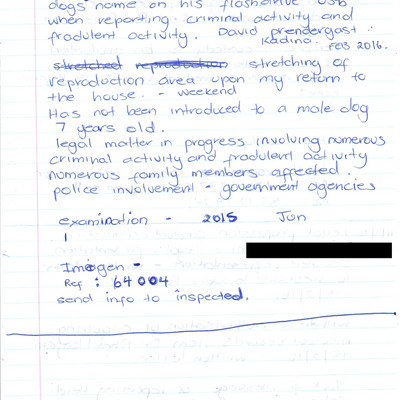 dogs name on his flashdrive USB
when reporting criminal activity and
frodulent activity. David prendergast.
Kadina. FEB 2016.
stretched reproduction stretching of
reproduction area upon my return to
the house. - weekend
Has not been introduced to a male dog
7 years old.
legal matter in progress involving numerous
criminal activity and frodulent activity
numerous family members affected.
police involvement - government agencies
examination - 2015 Jun
Imogen -
Ref : 64004
send info to inspected.